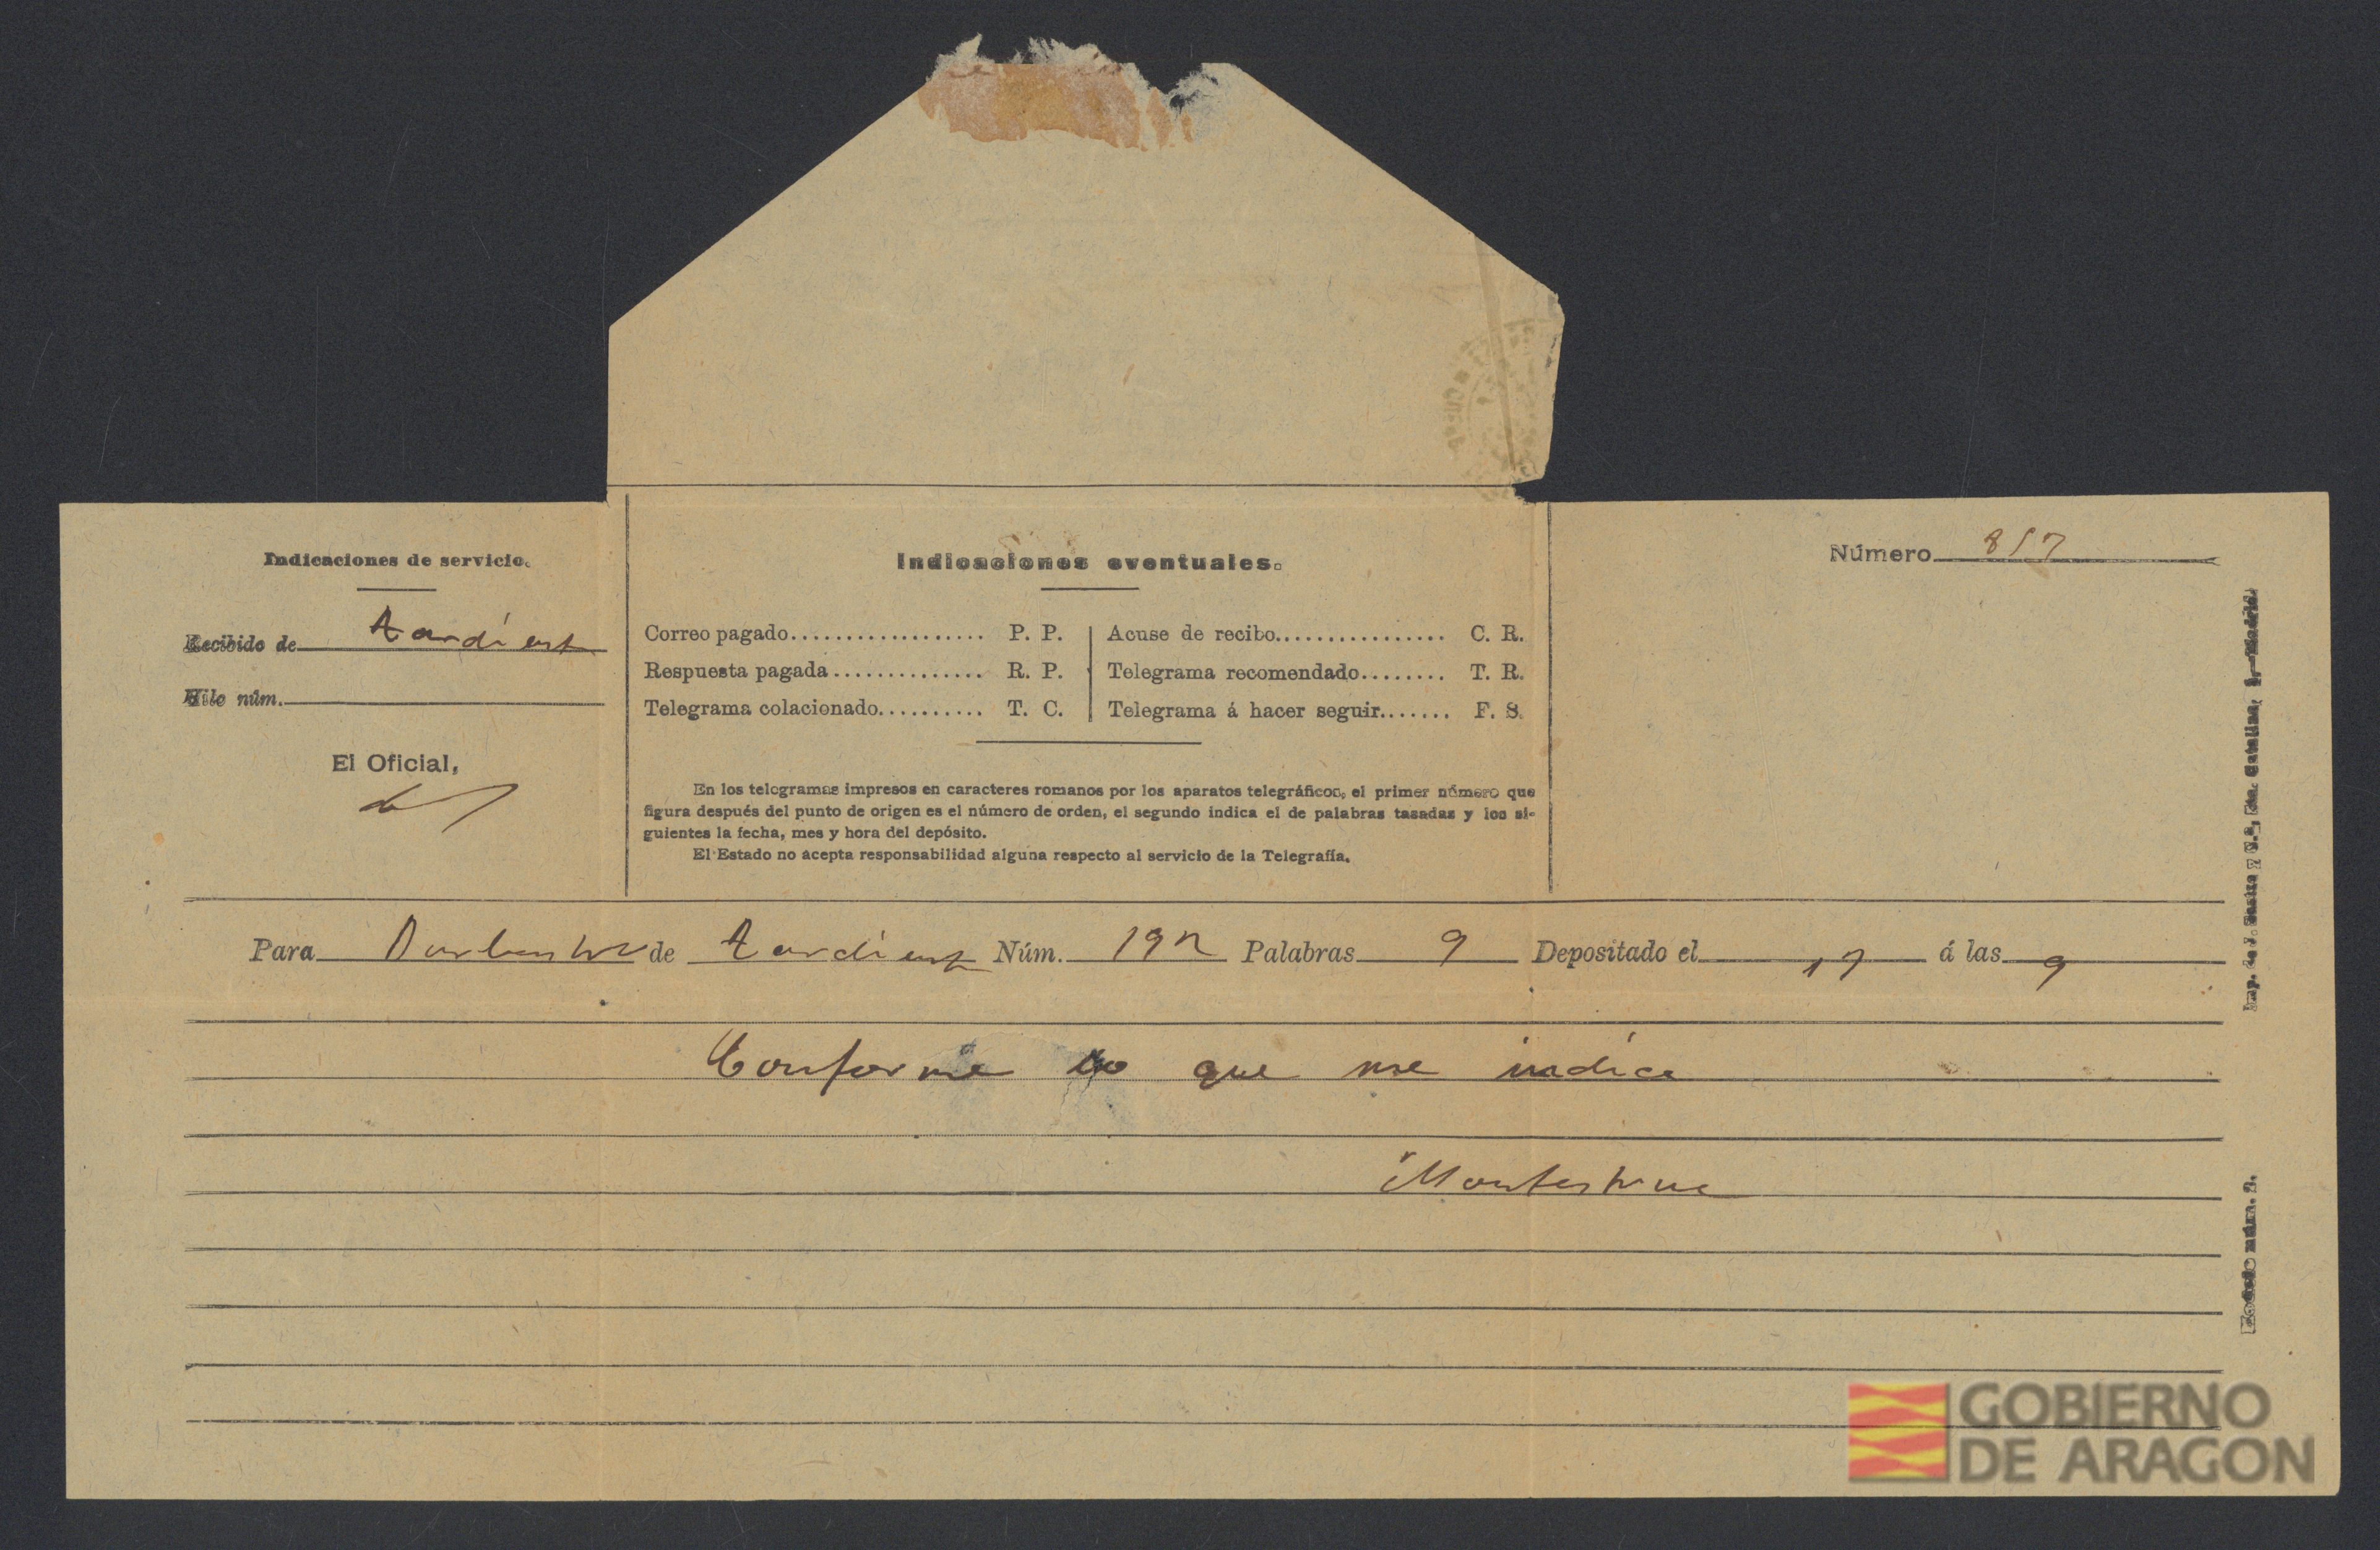 Indicaciones de servicio.
Recibido de Tardienta
Hilo núm.
El Oficial,
Indicaciones eventuales.
Correo pagado.................. P. P.
Respuesta pagada.............. R. P.
Telegrama colacionado.......... T. C.
Acuse de recibo................ C. R.
Telegrama recomendado........ T. R.
Telegrama á hacer seguir....... F. S.
En los telegramas impresos en caracteres romanos por los aparatos telegráficos, el primer número que
figura después del punto de origen es el número de orden, el segundo indica el de palabras tasadas y los si-
guientes la fecha, mes y hora del depósito.
El Estado no acepta responsabilidad alguna respecto al servicio de la Telegrafía.
Número 857
Para Barbastro de Tardienta Núm. 192 Palabras 9 Depositado el 17 á las 9
Conforme lo que me indica
Montestruc
Modelo núm. 9.
GOBIERNO
DE ARAGON